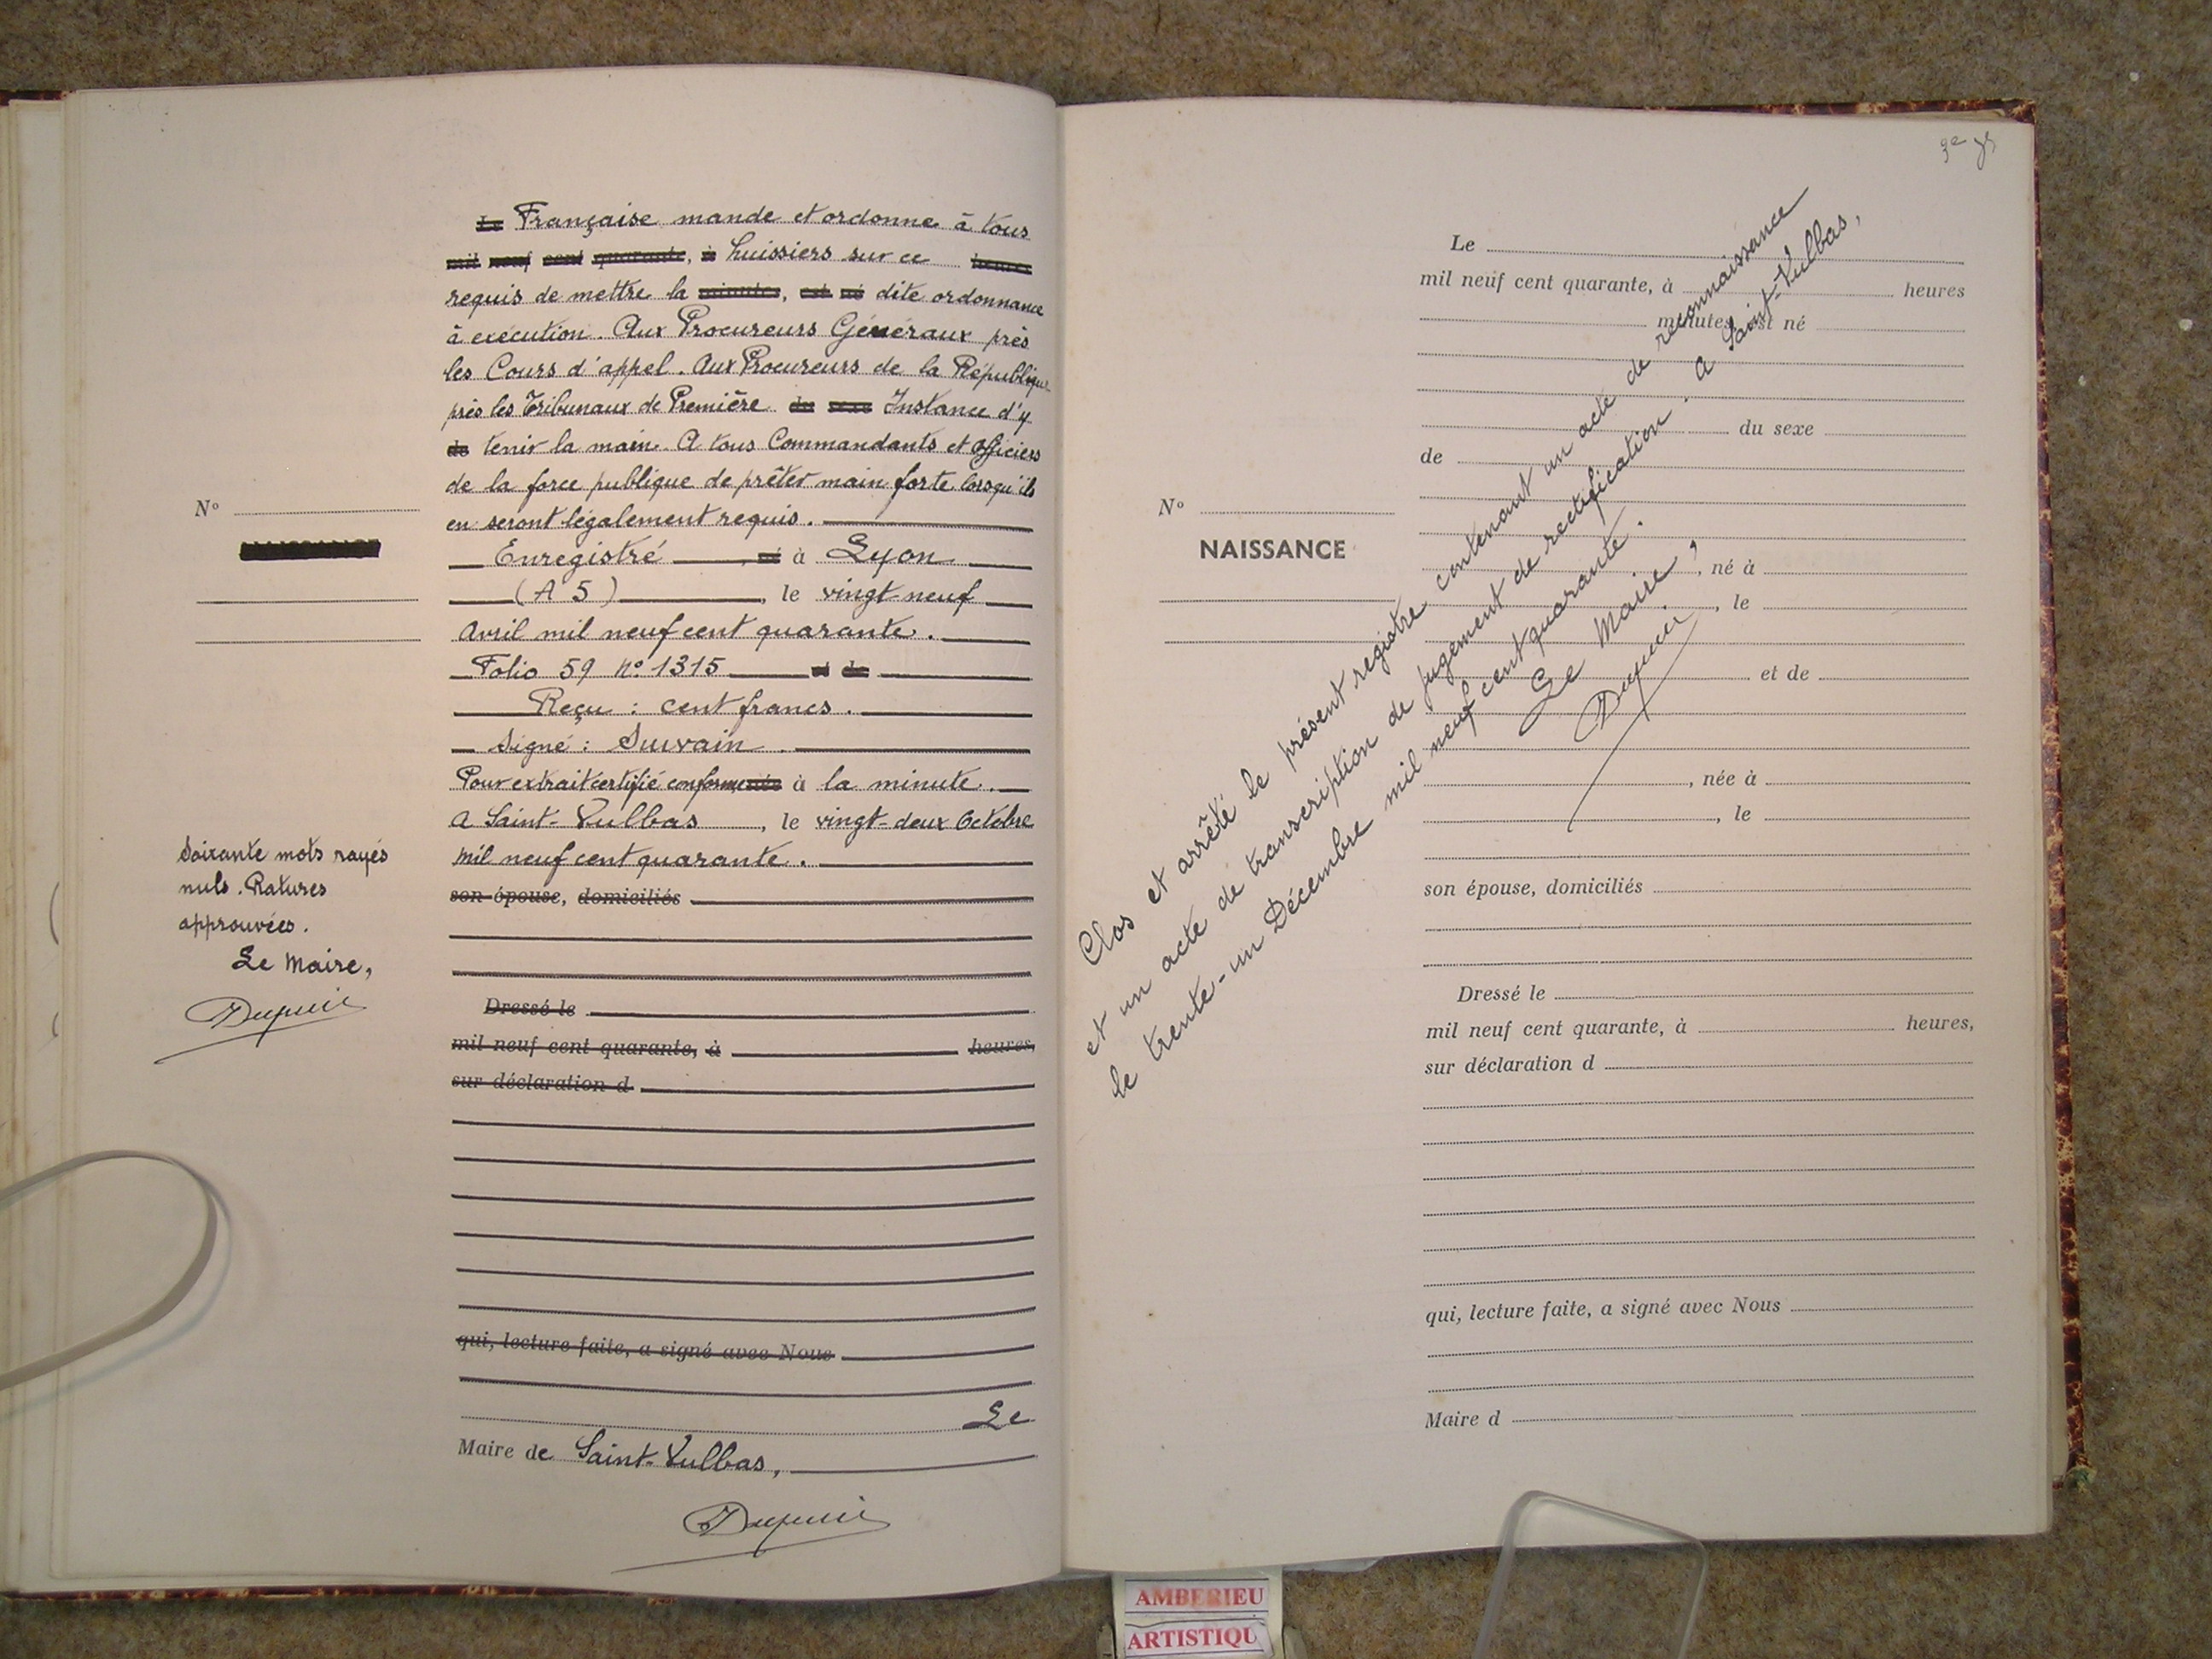 Le Française mande et ordonne à tous
mil neuf cent quarante, à huissiers sur ce heures
requis de mettre la minutes, est né dite ordonnance
à exécution. Aux Procureurs Généraux près
les Cours d'appel. Aux Procureurs de la République
près les Tribunaux de Première du sexe Instance d'y
de tenir la main. A tous Commandants et Officiers
de la force publique de prêter main forte lorsqu'ils
en seront légalement requis.
Enregistré, né à Lyon
(A 5), le vingt-neuf
Avril mil neuf cent quarante.
Folio 59 n° 1315 et de
Reçu : cent francs.
Signé : Survain
Pour extrait certifié conforme, née à la minute.
A Saint-Vulbas, le vingt-deux Octobre
mil neuf cent quarante.
son épouse, domiciliés
Dressé le
mil neuf cent quarante, à heures,
sur déclaration d
qui, lecture faite, a signé avec Nous
Le
Maire de Saint-Vulbas,
Dupuis
N°
NAISSANCE
Soixante mots rayés
nuls. Ratures
approuvées.
Le Maire,
Dupuis
Le
mil neuf cent quarante, à heures
minutes, est né
du sexe
de
N°
NAISSANCE
, né à
, le
et de
, née à
, le
son épouse, domiciliés
Dressé le
mil neuf cent quarante, à heures,
sur déclaration d
qui, lecture faite, a signé avec Nous
Maire d
Clos et arrêté le présent registre contenant un acte de reconnaissance
et un acte de transcription de jugement de rectification. A Saint-Vulbas,
le trente-un Décembre mil neuf cent quarante.
Le Maire,
Dupuis
AMBERIEU
ARTISTIQU